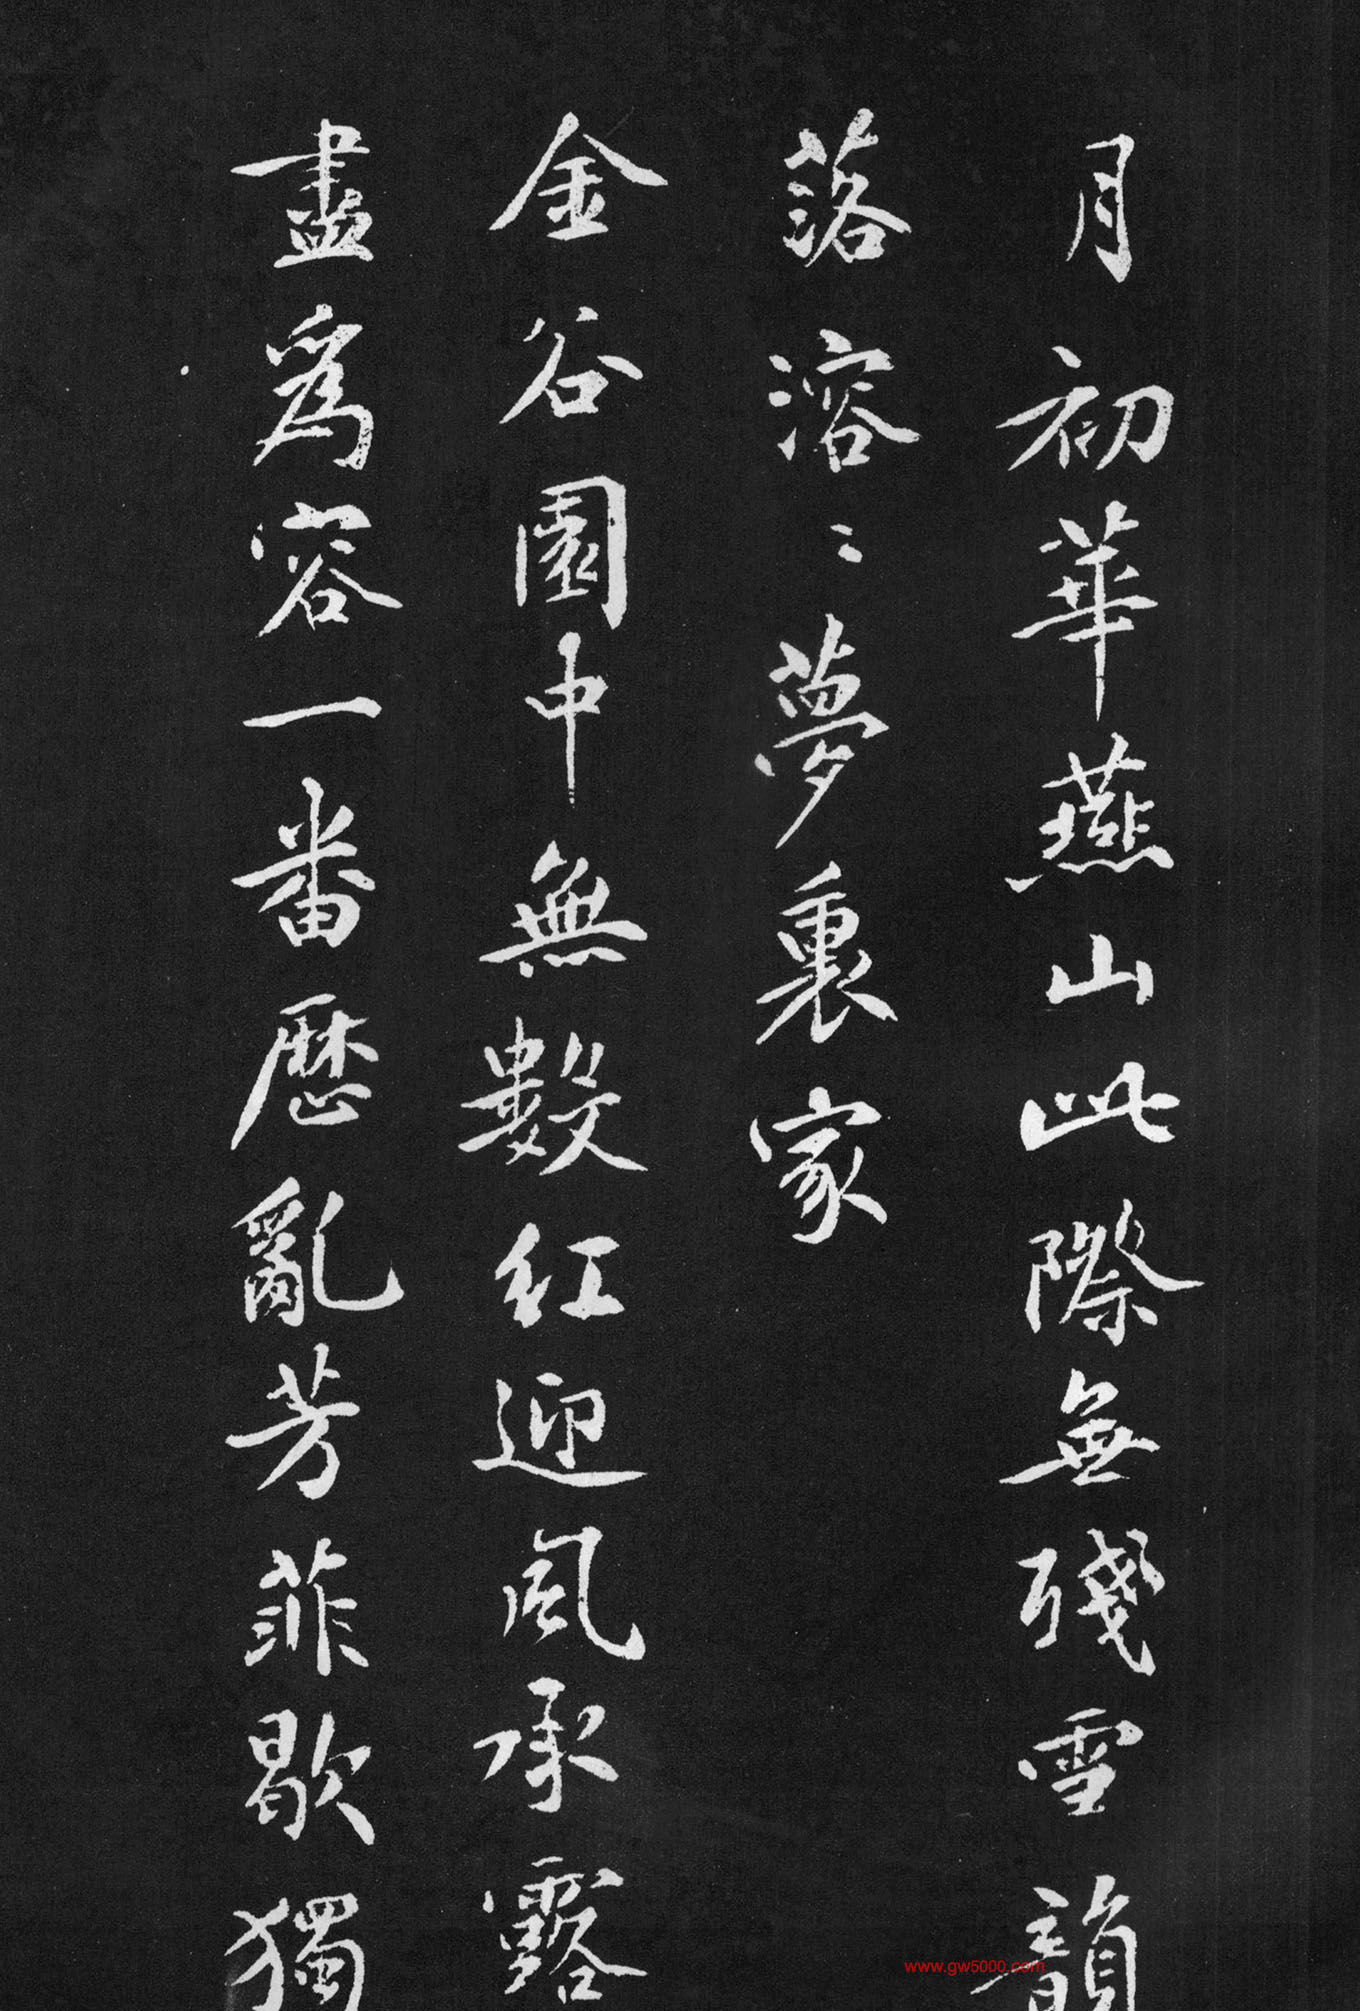 月初華燕山此際無殘雪韻
落溶〻夢裏家
金谷園中無數紅迎風承露
盡為容一番歷亂芳菲歇獨
www.gw5000.com